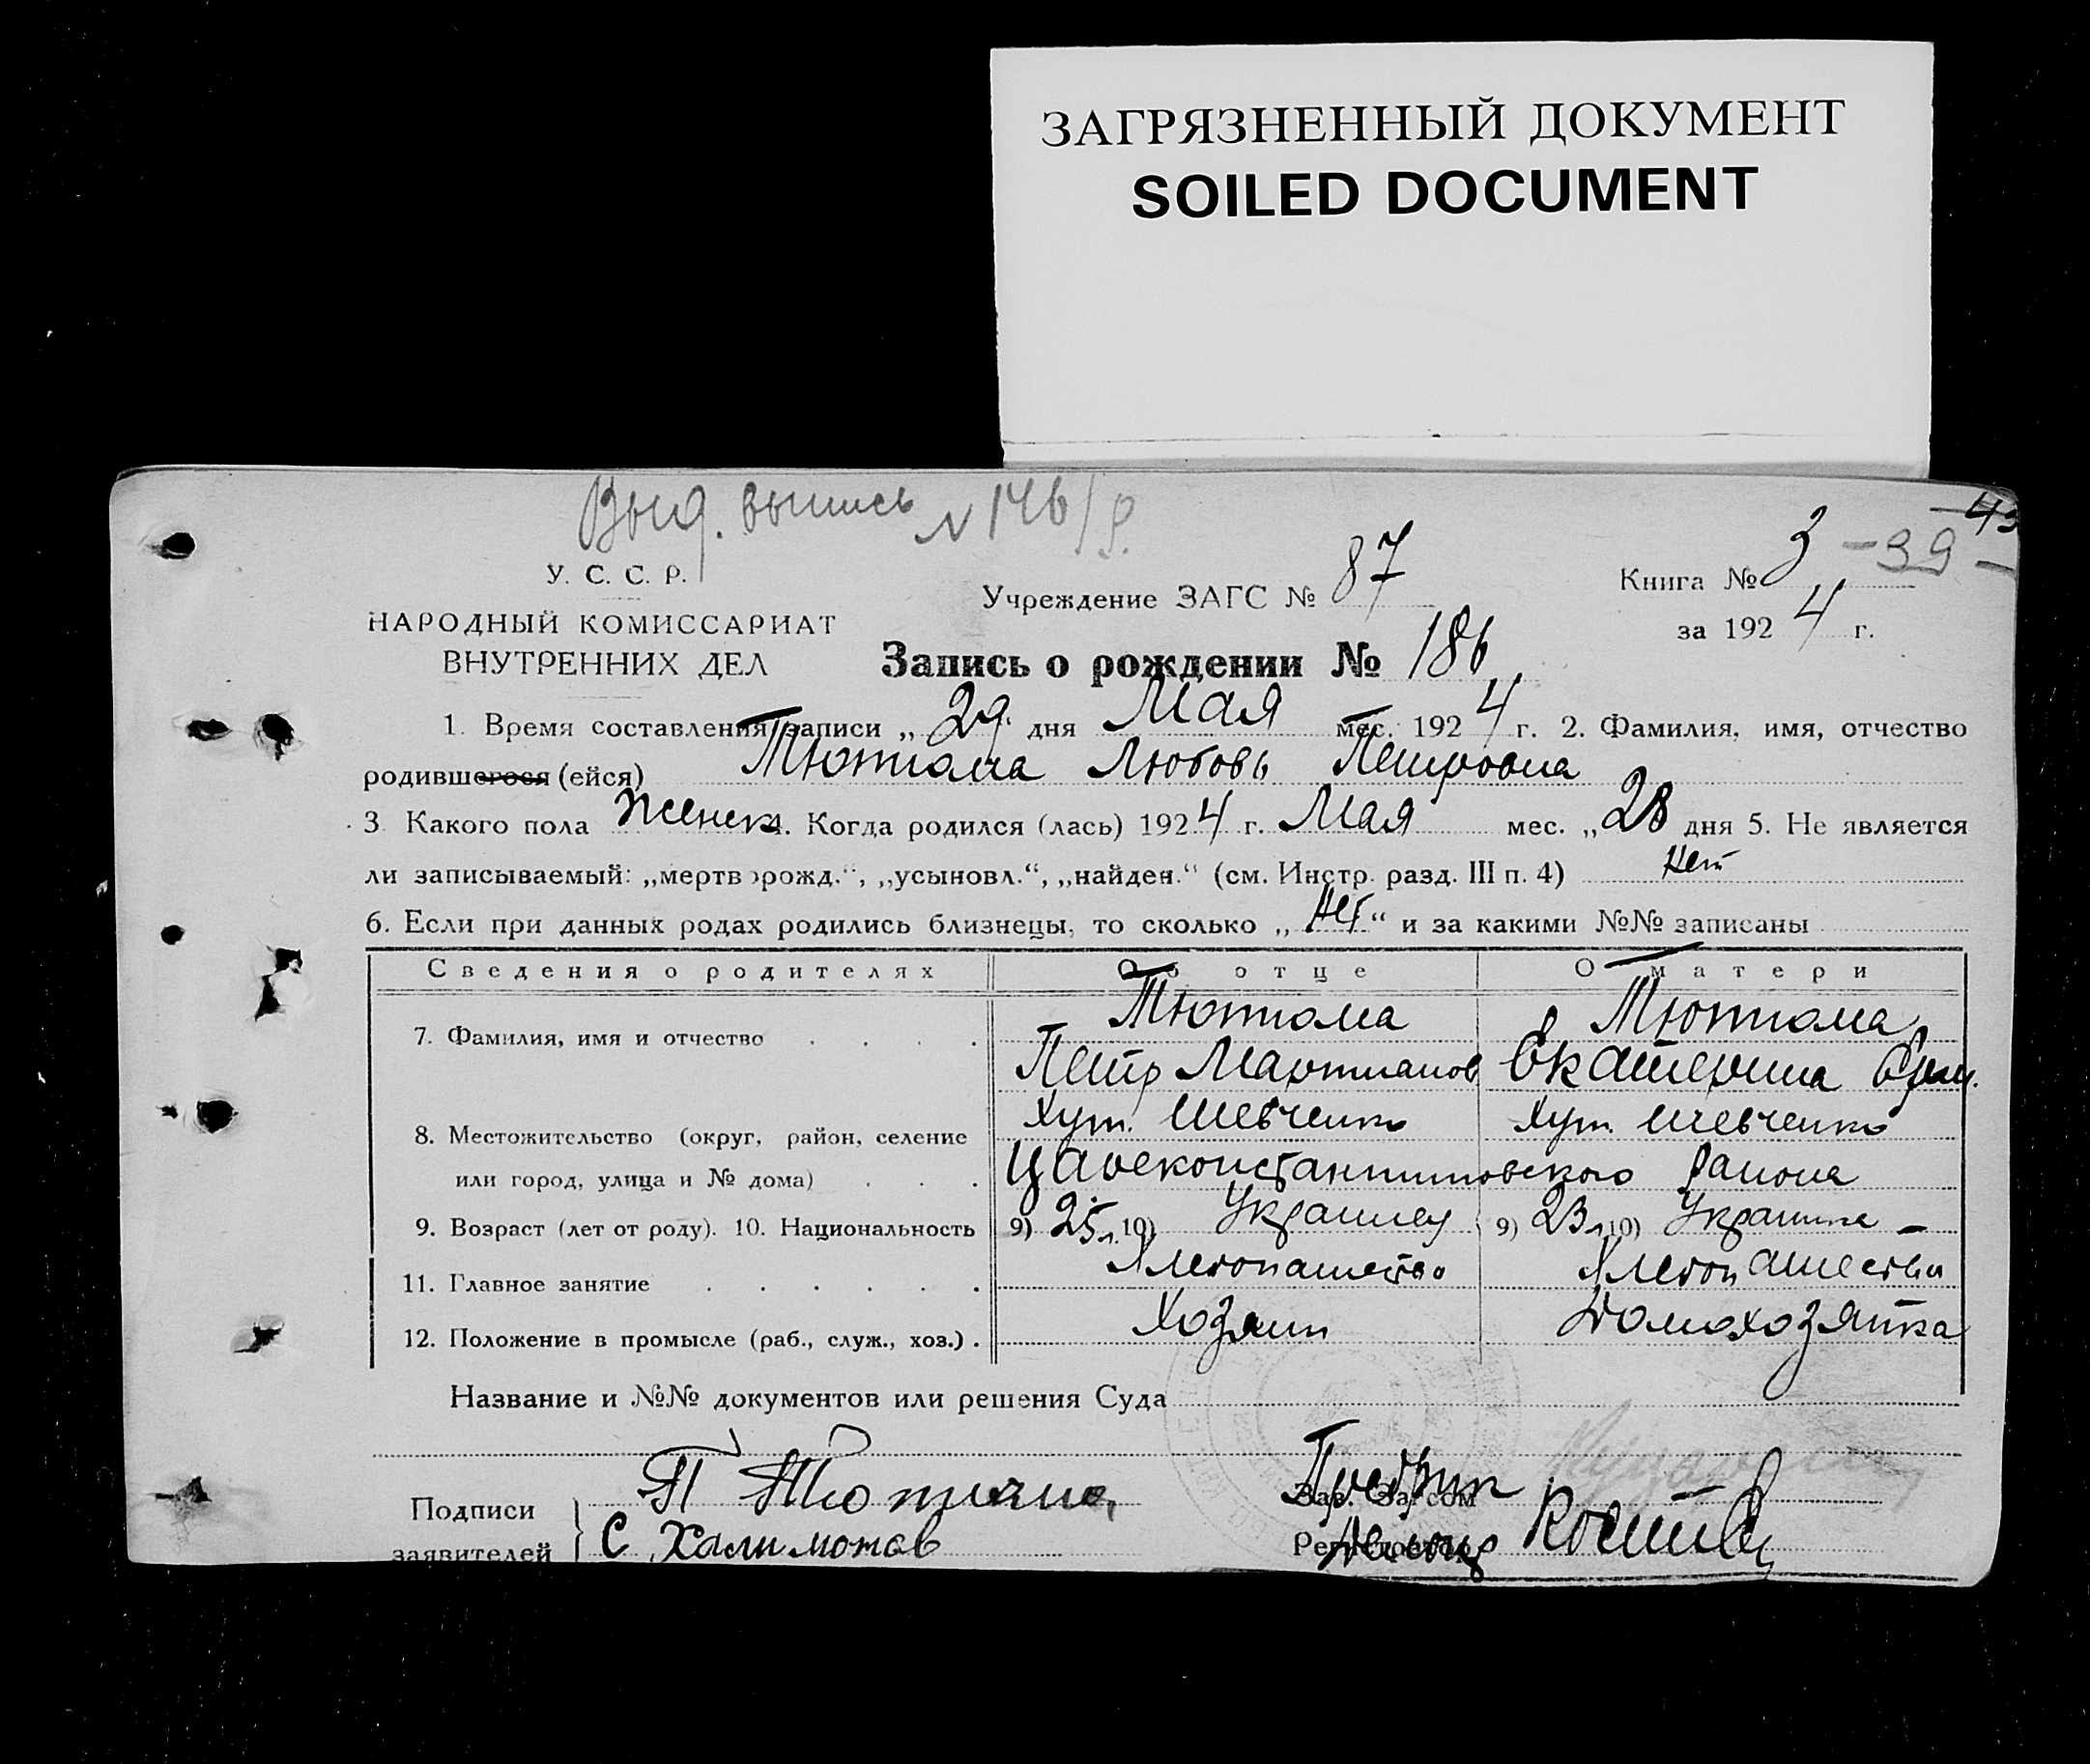 ЗАГРЯЗНЕННЫЙ ДОКУМЕНТ
SOILED DOCUMENT
Выд. выпись № 146/р.
43
— 39 —
У. С. С. Р.
НАРОДНЫЙ КОМИССАРИАТ
ВНУТРЕННИХ ДЕЛ
Учреждение ЗАГС № 87
Книга № 3
за 1924 г.
Запись о рождении № 186
1. Время составления записи „29" дня Мая мес. 1924 г. 2. Фамилия, имя, отчество
родившегося (ейся) Тютюма Любовь Петровна
3 Какого пола Женск 4. Когда родился (лась) 1924 г. Мая мес. „28 дня 5. Не является
ли записываемый: „мертворожд.“, „усыновл.“, „найден.“ (см. Инстр. разд. III п. 4) нет
6. Если при данных родах родились близнецы, то сколько „нет“ и за какими №№ записаны
Сведения о родителях Об отце О матери
7. Фамилия, имя и отчество Тютюма Тютюма
Петр Екатерина
8. Местожительство (округ, район, селение Хут. Шевченко Хут. Шевченко
или город, улица и № дома) Цареконстантиновского района
9. Возраст (лет от роду). 10. Национальность 9) 25 л. 10) Украинец 9) 23 л. 10) Украинка
11. Главное занятие Хлебопашество Хлебопашество
12. Положение в промысле (раб., служ., хоз.) Хозяин Домохозяйка
Название и №№ документов или решения Суда
Подписи П Тютюма Зав. Загсом
заявителей С Халимонов Регистратор